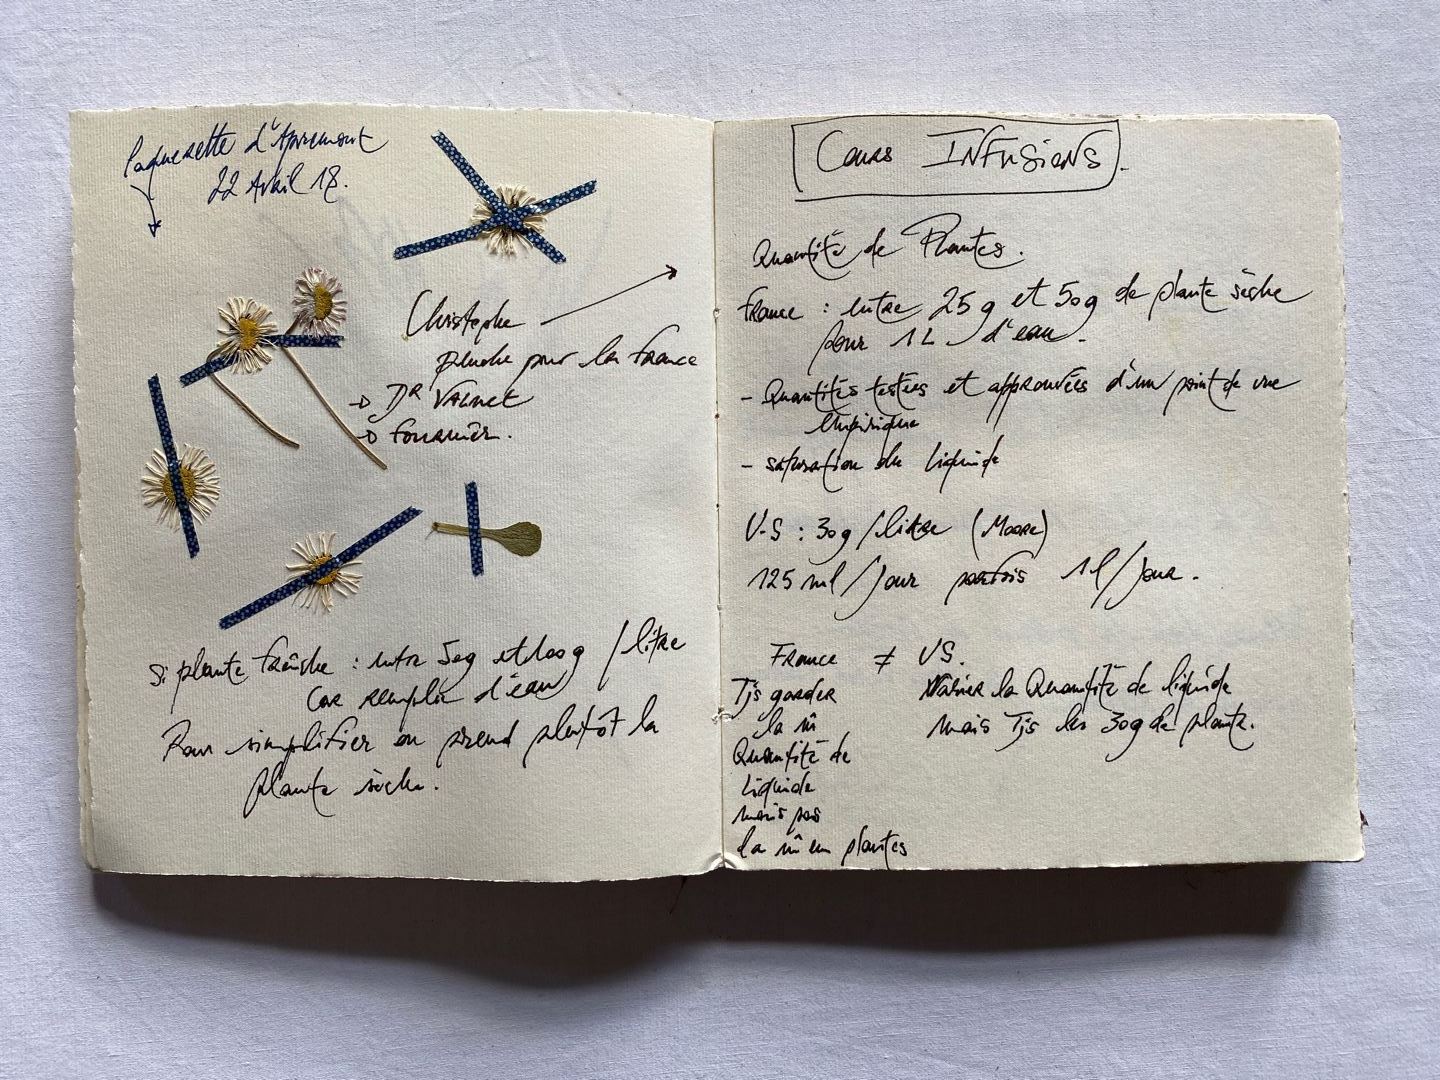 Paquerette d'Apremont
22 Avril 18.
Christophe
penche pour la France
→ Dr Valnet
→ Fournier.
Si plante fraîche : entre 50g et 100g / litre
car remplie d'eau
Pour simplifier on prend plutôt la
plante sèche.
Cours INFUSIONS.
Quantité de Plantes.
France : entre 25g et 50g de plante sèche
pour 1L d'eau.
- Quantités testées et approuvées d'un point de vue
empirique
- saturation du liquide
U-S : 30g / litre (Moore)
125 ml / jour parfois 1l / jour.
France ≠ US.
Tjs garder
la m̂
Quantité de
liquide
mais pas
la m̂ en plantes
Varier la Quantité de liquide
mais Tjs les 30g de plante.